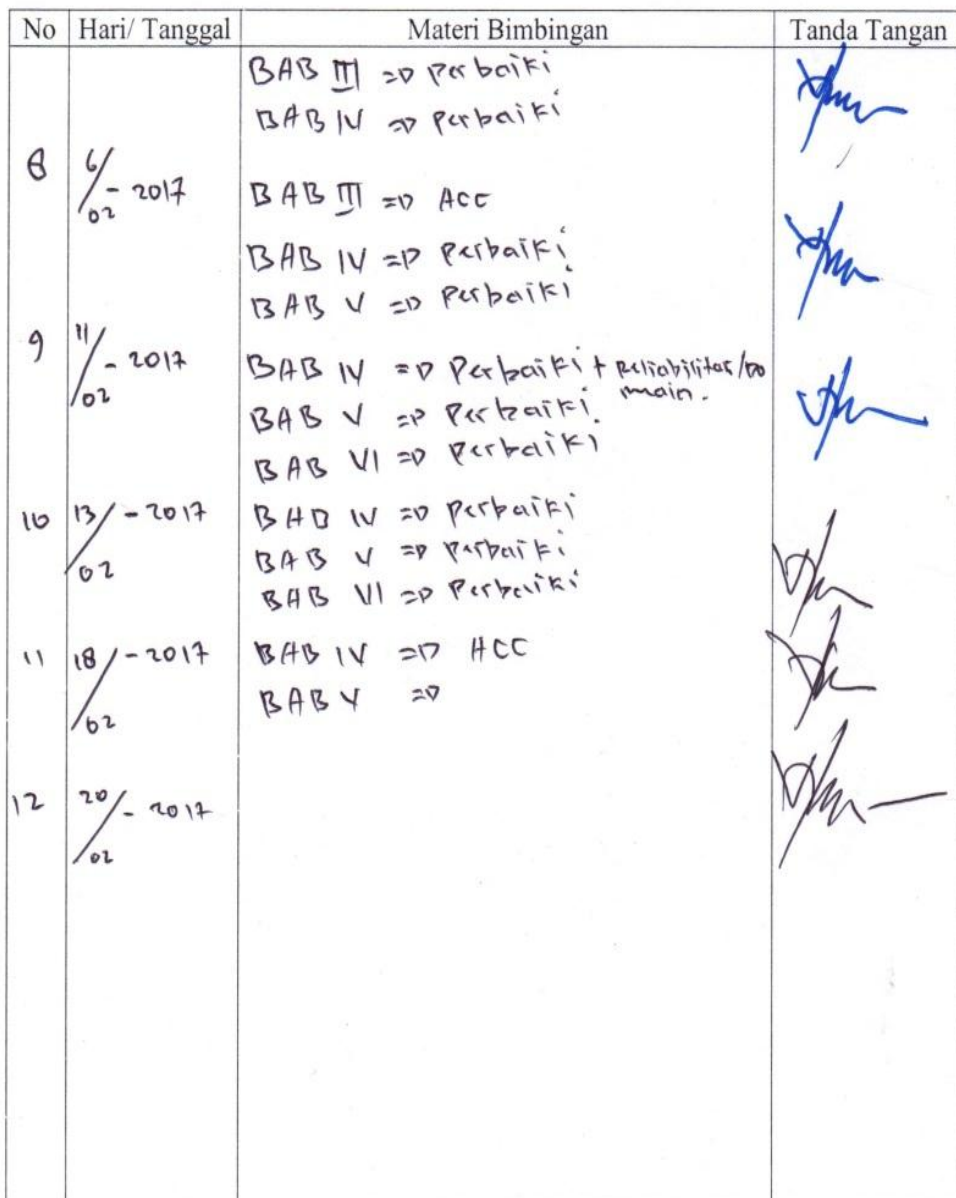 No Hari/ Tanggal Materi Bimbingan Tanda Tangan
BAB III => Perbaiki
BAB IV => Perbaiki
8 6/02 - 2017 BAB III => ACC
BAB IV => Perbaiki
BAB V => Perbaiki
9 11/02 - 2017 BAB IV => Perbaiki + Reliabilitas/Do
main.
BAB V => Perbaiki
BAB VI => Perbaiki
10 13/02 - 2017 BAB IV => Perbaiki
BAB V => Perbaiki
BAB VI => Perbaiki
11 18/02 - 2017 BAB IV => ACC
BAB V =>
12 20/02 - 2017